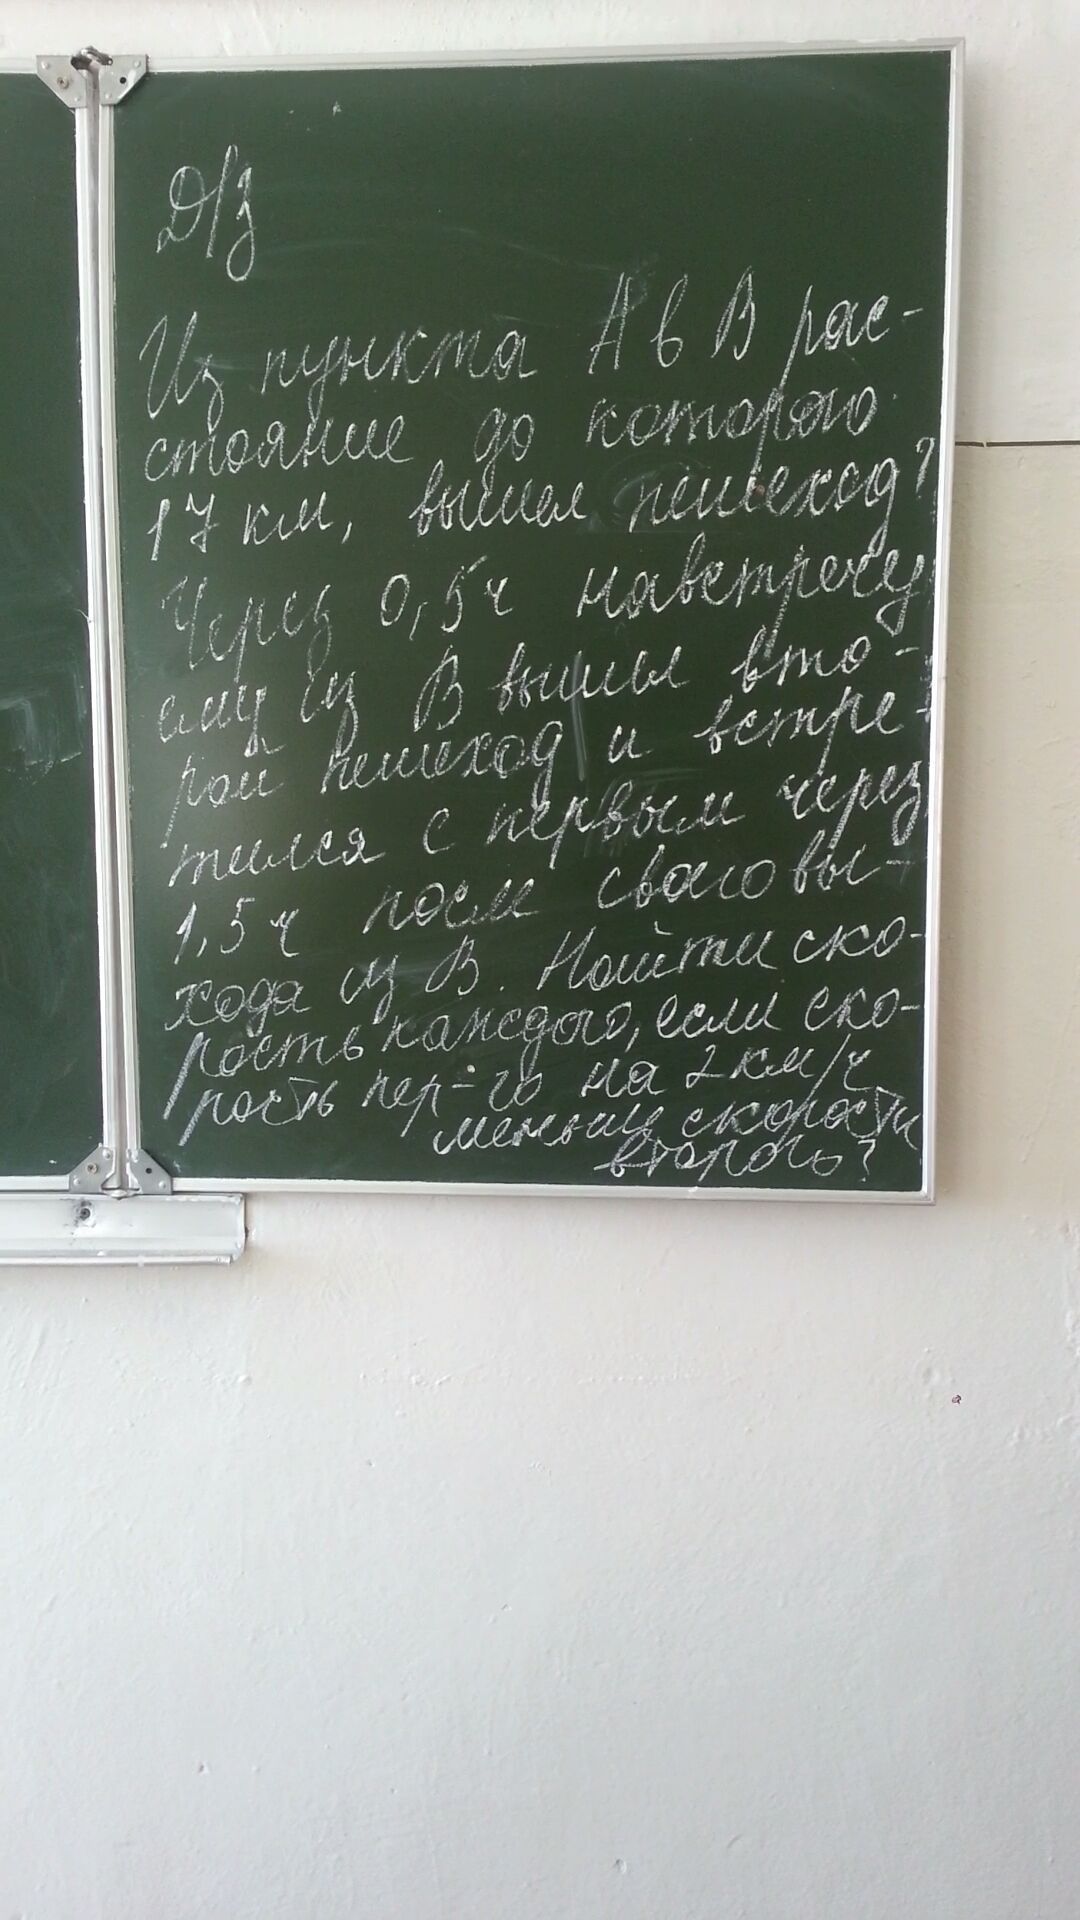 Д/з
Из пункта А в В рас-
стояние до которого
17 км, вышел пешеход?
Через 0,5ч навстречу
ему из В вышел вто-
рой пешеход и встре-
тился с первым через
1,5 ч после своего вы-
хода из В. Найти ско-
рость каждого, если ско-
рость пер-го на 2 км/ч
меньше скорости
второго?